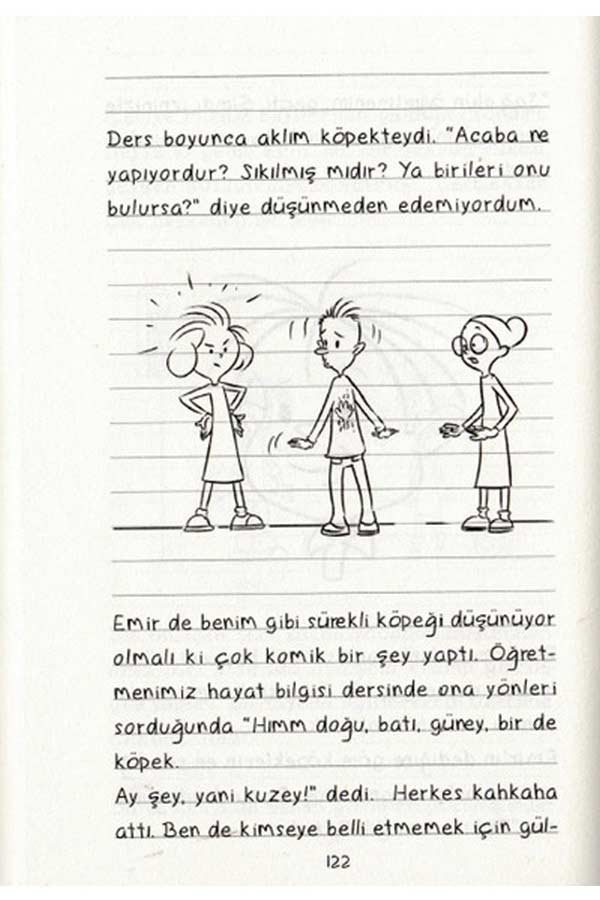 Ders boyunca aklım köpekteydi. "Acaba ne
yapıyordur? Sıkılmış mıdır? Ya birileri onu
bulursa?" diye düşünmeden edemiyordum.
Emir de benim gibi sürekli köpeği düşünüyor
olmalı ki çok komik bir şey yaptı. Öğret-
menimiz hayat bilgisi dersinde ona yönleri
sorduğunda "Hımm doğu, batı, güney, bir de
köpek.
Ay şey, yani kuzey!" dedi. Herkes kahkaha
attı. Ben de kimseye belli etmemek için gül-
122